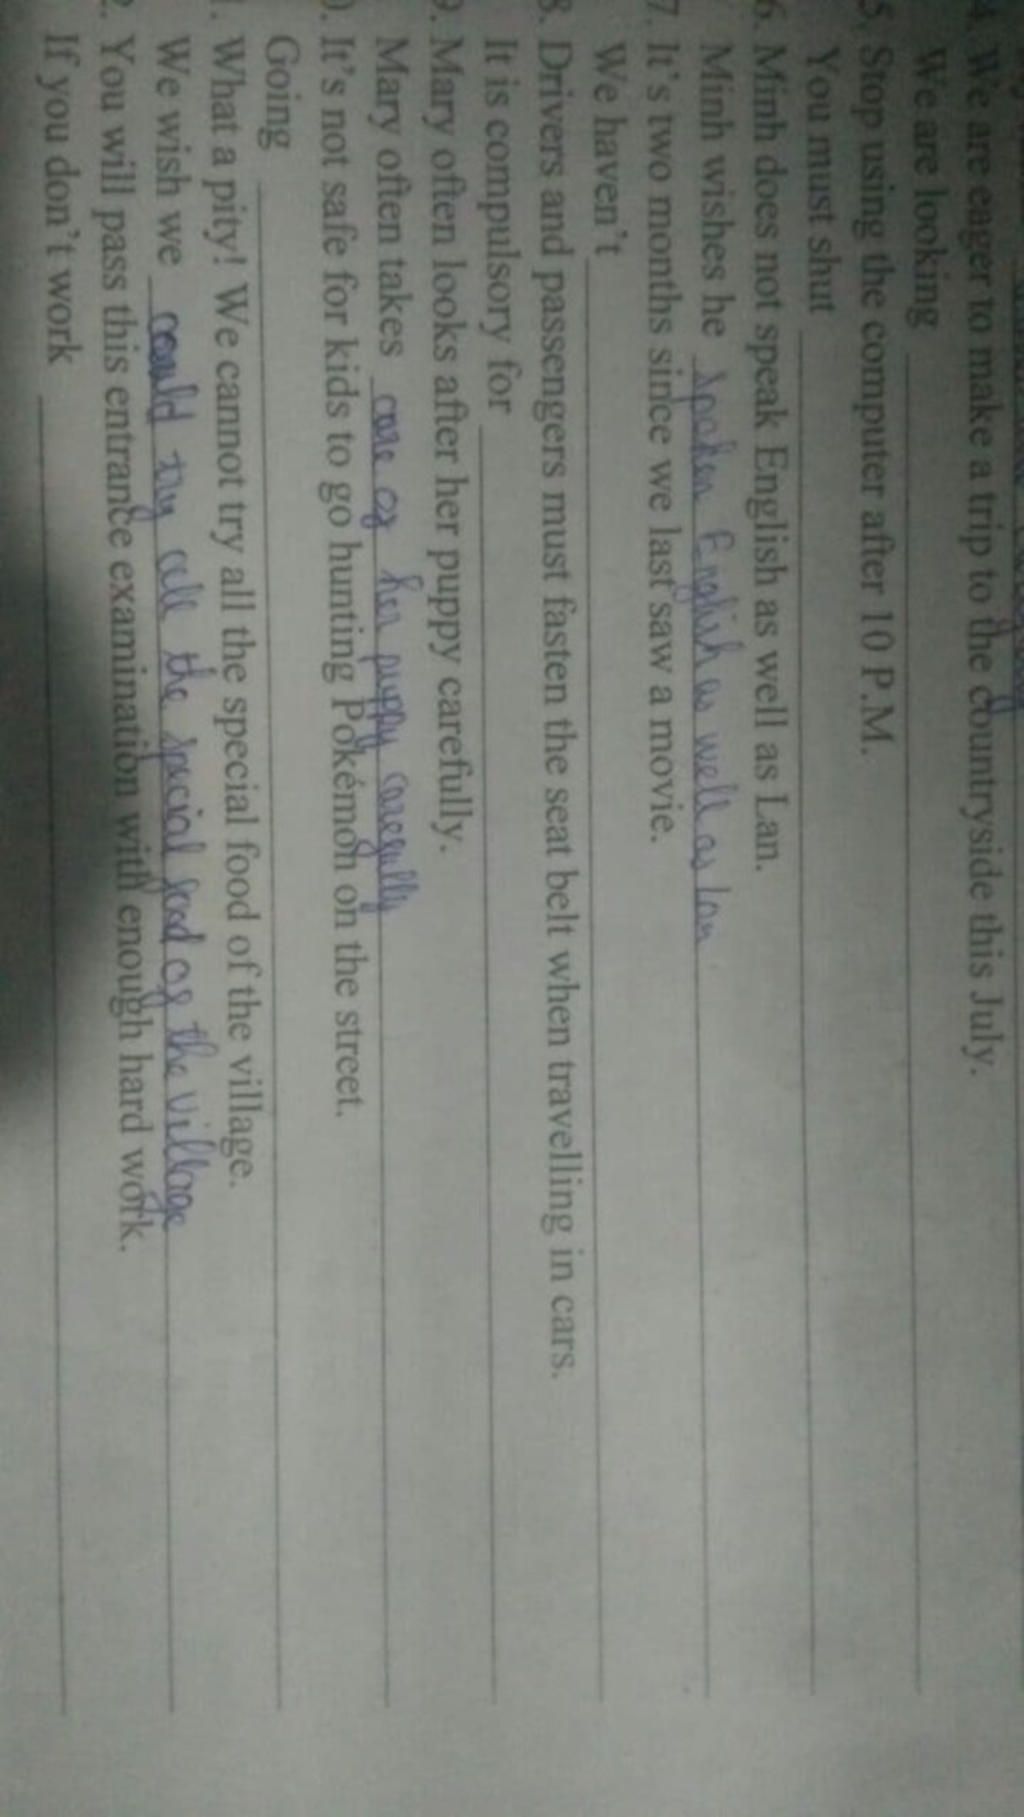 4. We are eager to make a trip to the countryside this July.
We are looking
5. Stop using the computer after 10 P.M.
You must shut
6. Minh does not speak English as well as Lan.
Minh wishes he spoken English as well as Lan
7. It's two months since we last saw a movie.
We haven't
8. Drivers and passengers must fasten the seat belt when travelling in cars.
It is compulsory for
9. Mary often looks after her puppy carefully.
Mary often takes care of her puppy carefully
0. It's not safe for kids to go hunting Pokémon on the street.
Going
1. What a pity! We cannot try all the special food of the village.
We wish we could try all the special food of the village
2. You will pass this entrance examination with enough hard work.
If you don't work